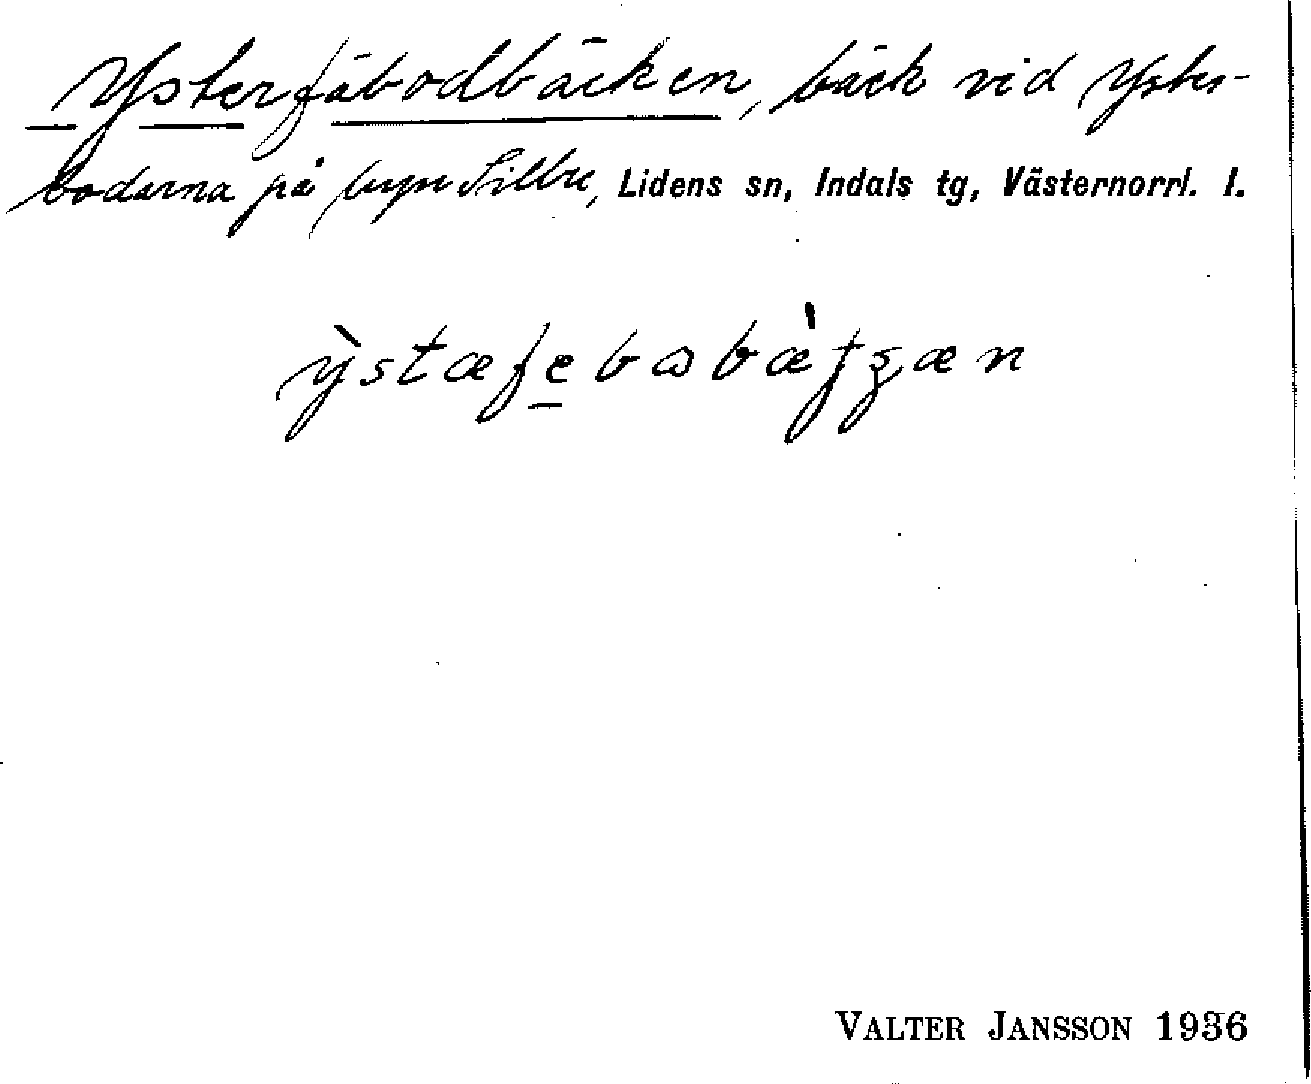 Ysterfäbodbäcken, bäck vid Yster-
bodarna på byn Sillre, Lidens sn, Indals tg, Västernorrl. l.
ỳstæfe̱bɷbæ̀ʃʒæn
VALTER JANSSON 1936